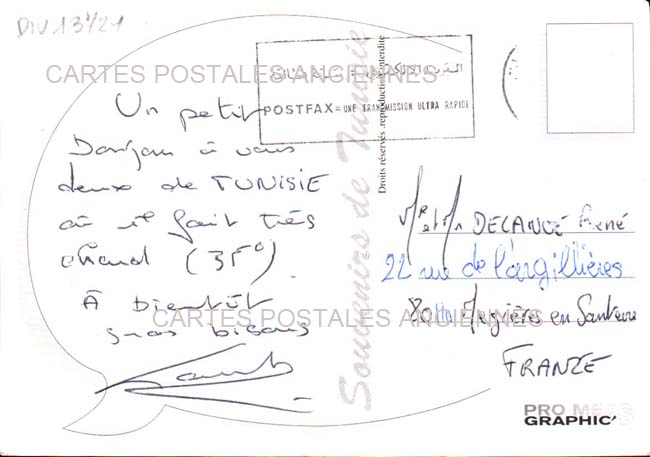 DIV.13/21
CARTES POSTALES ANCIENNES
POSTFAX = UNE TRANSMISSION ULTRA RAPIDE
Un petit
Bonjour à vous
deux de TUNISIE
où il fait très
chaud (35°)
À Bientôt
gros bisous
CARTES POSTALES ANCIENNES
Souvenirs de Tunisie
Droits réservés .reproduction interdite
Mr et Mm DECANCE René
22 rue de l'argillières
Mezières en Santerre
FRANCE
PRO
GRAPHIC'